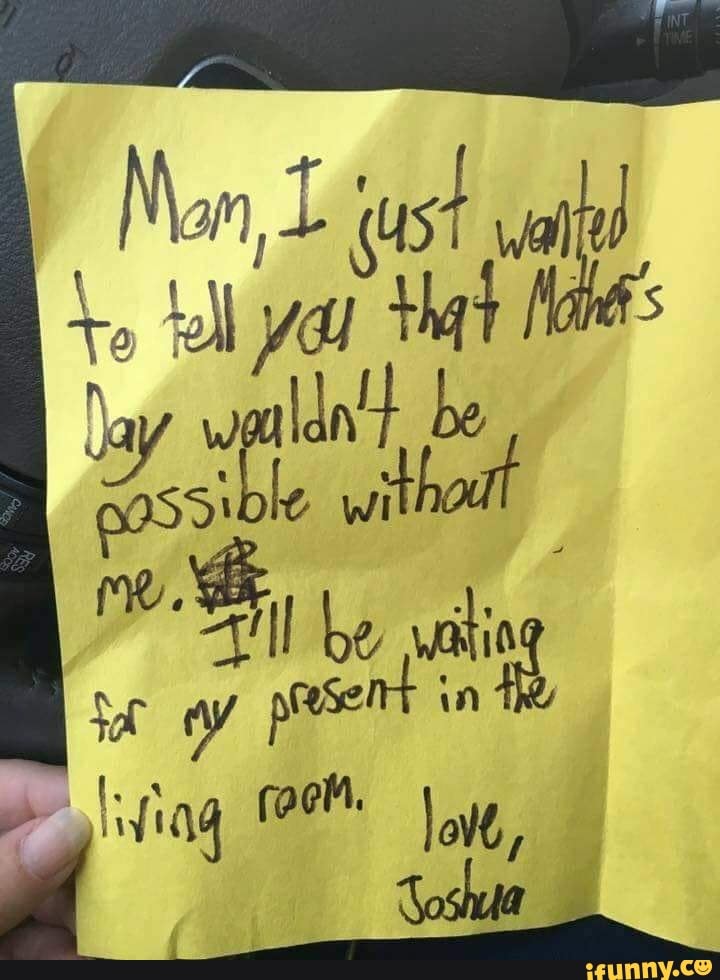 INT
TIME
Mom, I just wanted
to tell you that Mother's
Day wouldn't be
possible without
me.
I'll be waiting
for my present in the
living room.
love,
Joshua
CANCEL
RES
ACCEL
ifunny.co